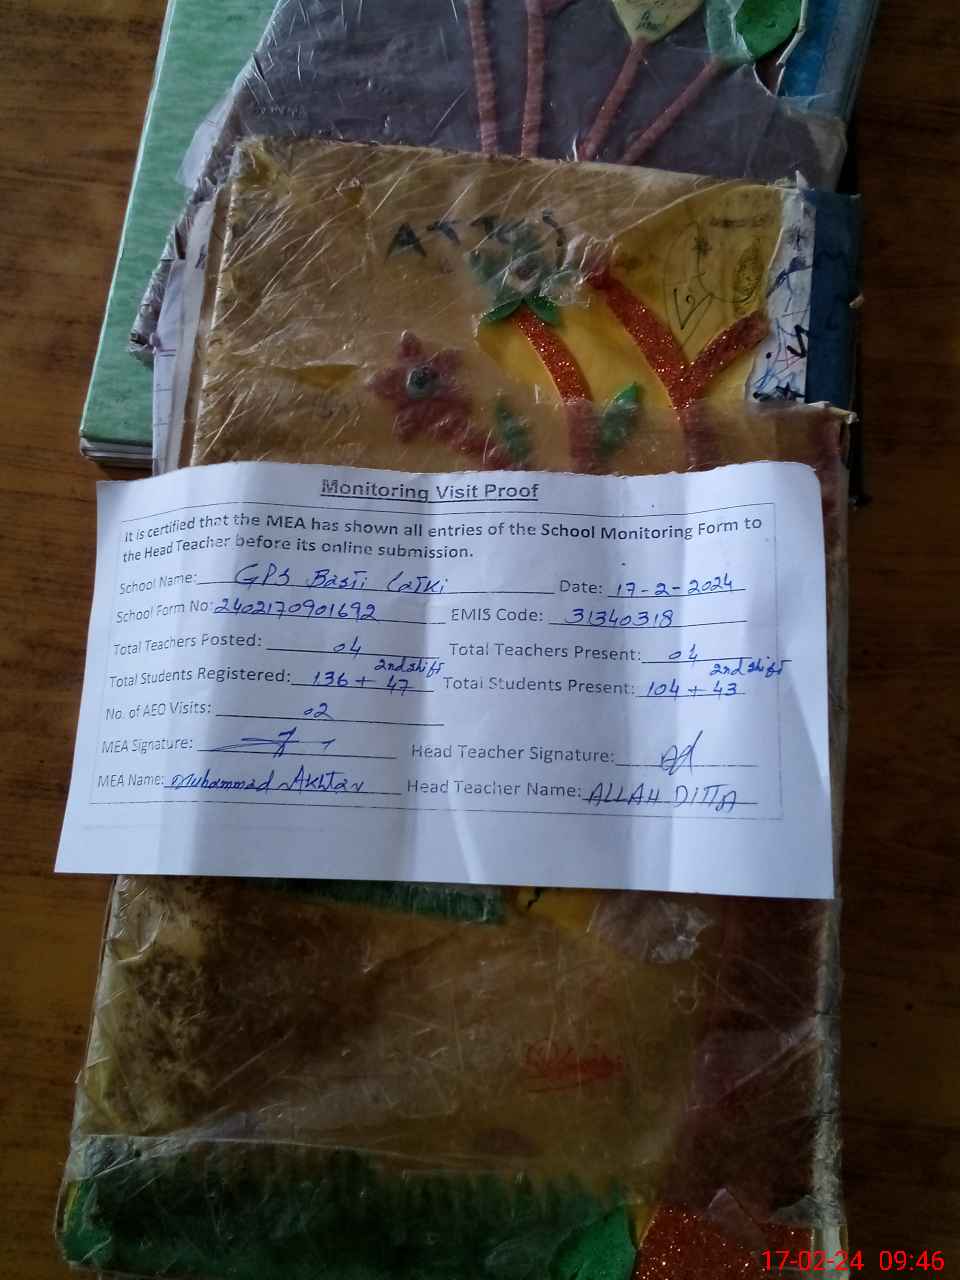 Monitoring Visit Proof
It is certified that the MEA has shown all entries of the School Monitoring Form to
the Head Teacher before its online submission.
School Name: GPS Basti Latki Date: 17-2-2024
School Form No: 2402170901692 EMIS Code: 31340318
Total Teachers Posted: 04 Total Teachers Present: 04
2nd shift 2nd shift
Total Students Registered: 136 + 47 Total Students Present: 104 + 43
No. of AEO Visits: 02
MEA Signature: Head Teacher Signature: Ad
MEA Name: Muhammad Akhtar Head Teacher Name: ALLAH DITTA
17-02-24 09:46